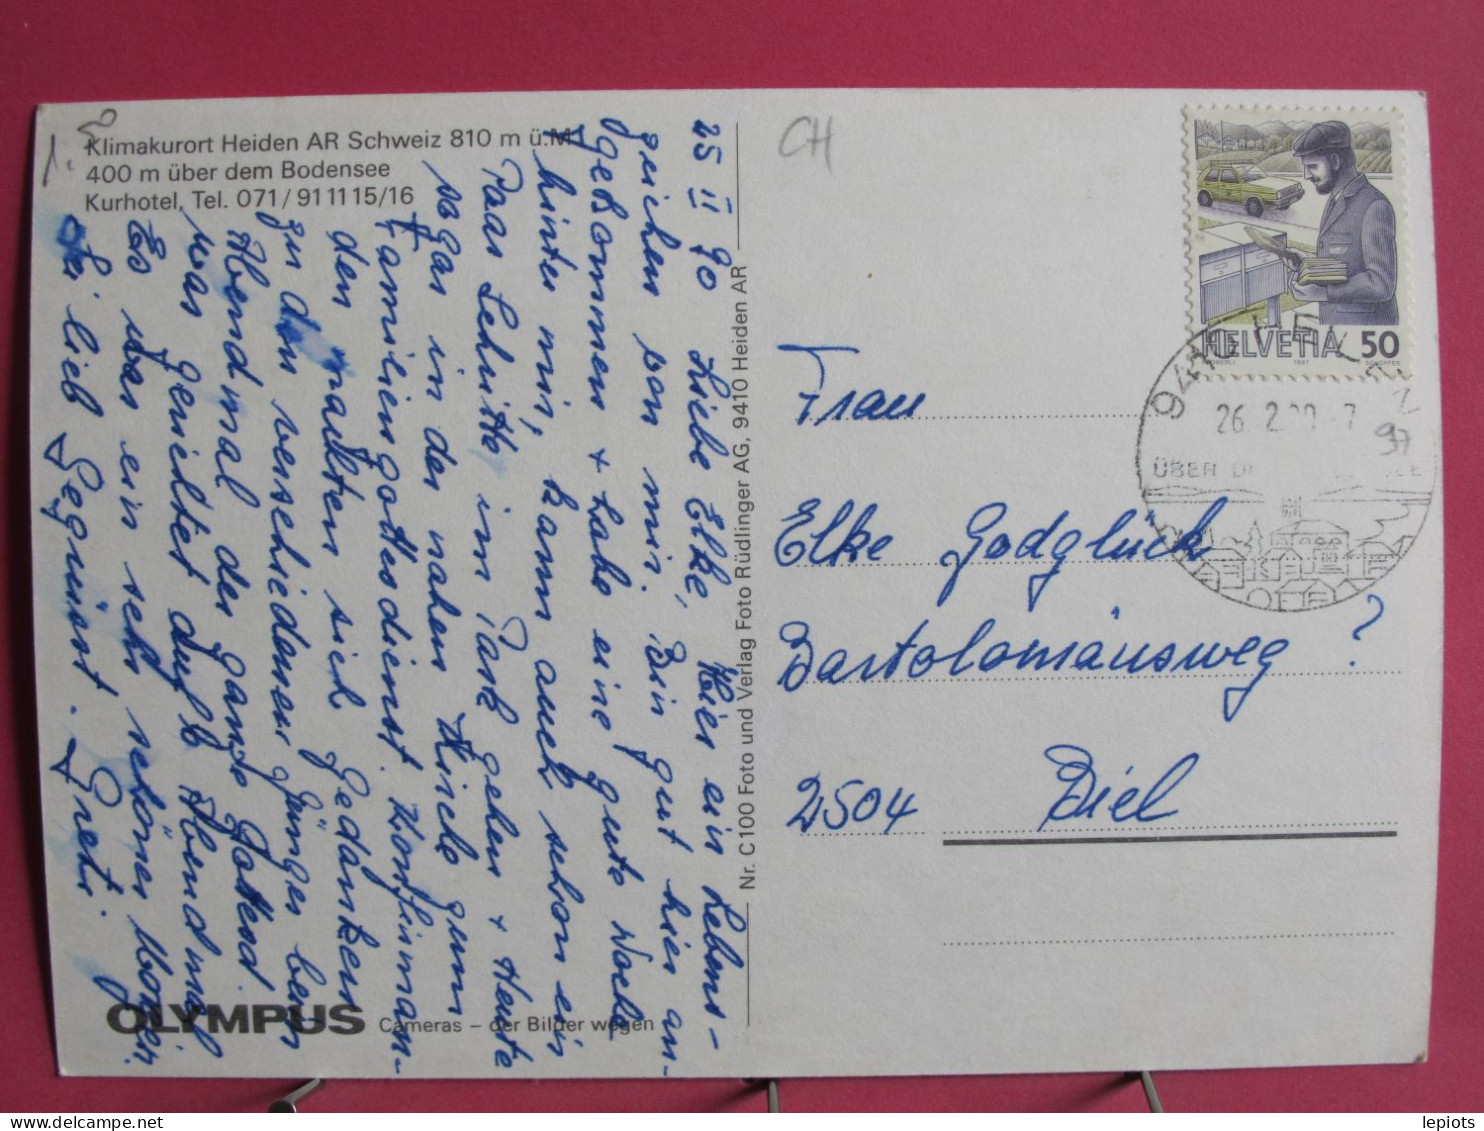 Klimakurort Heiden AR Schweiz 810 m ü.M
400 m über dem Bodensee
Kurhotel, Tel. 071/91 11 15/16
1.50
CH
25 II 90 Liebe Elke, Hier ein Lebens-
zeichen von mir. Bin gut hier an-
gekommen + habe eine gute Woche
hinter mir, kann auch schon ein
Paar Schritte im Park gehen + Heute
sogar in der nahen Kirche zum
Familiengottesdienst. Konfirman-
den machten sich Gedanken
zu den verschiedenen Jünger beim
Abendmal der ganze Gottesd.
war gerichtet auf's Abendmal
Es war ein sehr schöner Morgen.
Sei lieb Gegrüsst. Greti.
Nr. C 100 Foto und Verlag Foto Rüdlinger AG, 9410 Heiden AR
OLYMPUS Cameras – der Bilder wegen
HELVETIA 50
1987
9410 HEIDEN
26.2.90-7
ÜBER DEM
Frau
Elke Godglück
Bartolomäusweg ?
2504 Biel